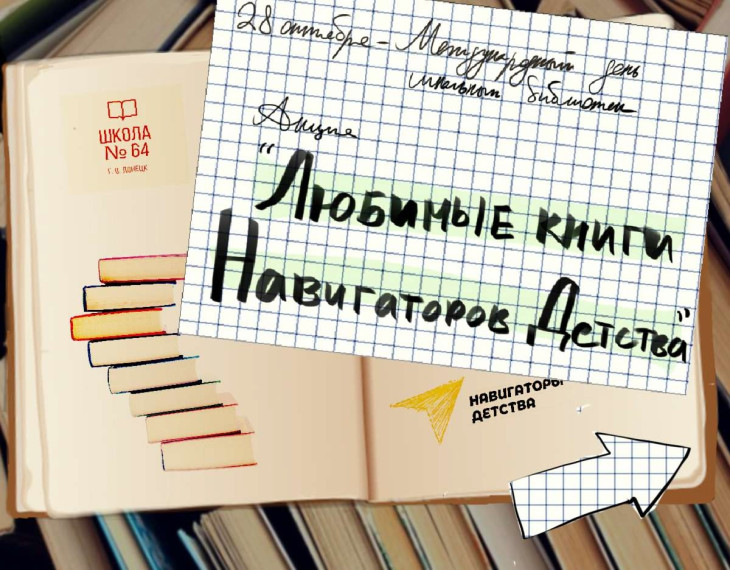 28 октября - Международный день
школьных библиотек
Акция
"Любимые книги
Навигаторов Детства"
ШКОЛА
№ 64
Г. О. ДОНЕЦК
НАВИГАТОРЫ
ДЕТСТВА